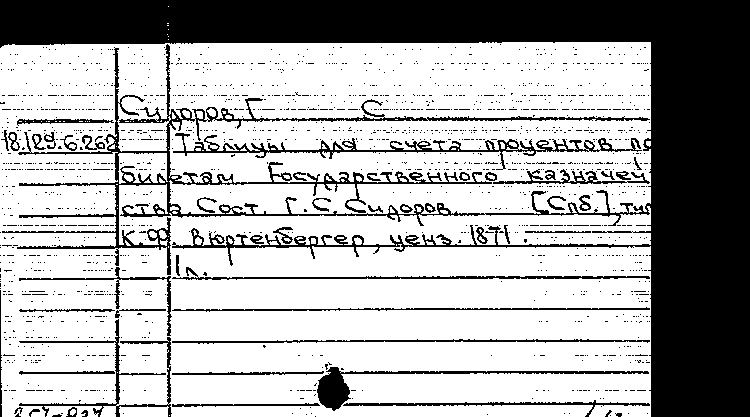 Сидоров, Г. С
18.129.6.262 Таблицы для счета процентов по
билетам Государственного казначей
ства. Сост. Г.С. Сидоров. [Спб.], тип
К.Ф. Вюртенбергер, ценз. 1871.
1 л.